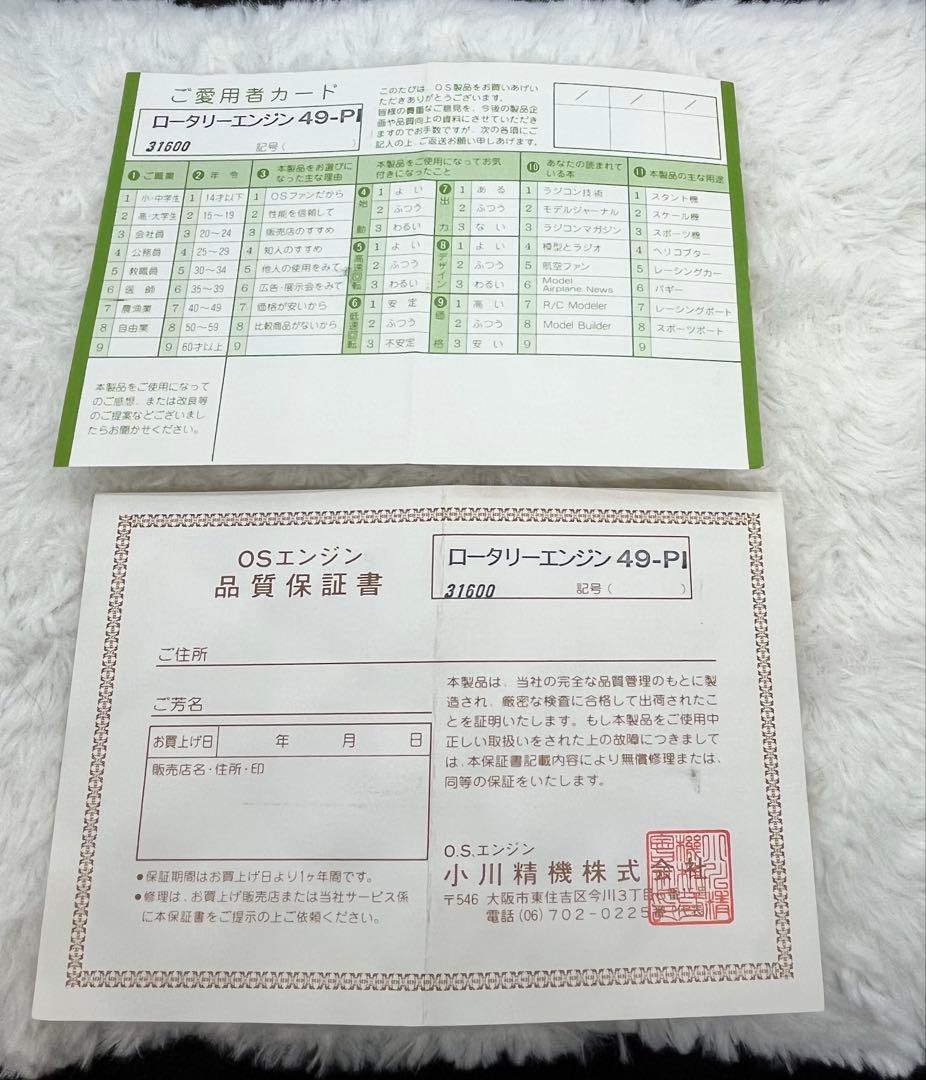 ご愛用者カード
ロータリーエンジン 49-PI
31600 記号( )
このたびは、OS製品をお買いあげい
ただきありがとうございます。
皆様の貴重なご意見を、今後の製品企
画や品質向上の資料にさせていただき
ますのでお手数ですが、次の各項にご
記入の上、ご返送お願い申しあげます。
❶ご職業
1 小・中学生
2 高・大学生
3 会社員
4 公務員
5 教職員
6 医師
7 農漁業
8 自由業
9
❷年令
1 14才以下
2 15〜19
3 20〜24
4 25〜29
5 30〜34
6 35〜39
7 40〜49
8 50〜59
9 60才以上
❸本製品をお選びに
なった主な理由
1 OSファンだから
2 性能を信頼して
3 販売店のすすめ
4 知人のすすめ
5 他人の使用をみて
6 広告・展示会をみて
7 価格が安いから
8 比較商品がないから
9
本製品をご使用になってお気
付きになったこと
❹始動
1 よい
2 ふつう
3 わるい
❺高速回転
1 よい
2 ふつう
3 わるい
❻低速回転
1 安定
2 ふつう
3 不安定
❼出力
1 ある
2 ふつう
3 ない
❽デザイン
1 よい
2 ふつう
3 わるい
❾価格
1 高い
2 ふつう
3 安い
❿あなたの読まれて
いる本
1 ラジコン技術
2 モデルジャーナル
3 ラジコンマガジン
4 模型とラジオ
5 航空ファン
6 Model
Airplane News
7 R/C Modeler
8 Model Builder
9
⓫本製品の主な用途
1 スタント機
2 スケール機
3 スポーツ機
4 ヘリコプター
5 レーシングカー
6 バギー
7 レーシングボート
8 スポーツボート
9
本製品をご使用になって
のご感想、または改良等
のご提案などございまし
たらお聞かせください。
OSエンジン
品質保証書
ロータリーエンジン 49-PI
31600 記号( )
ご住所
ご芳名
お買上げ日 年 月 日
販売店名・住所・印
●保証期間はお買上げ日より1ヶ年間です。
●修理は、お買上げ販売店または当社サービス係
に本保証書をご提示の上ご依頼ください。
本製品は、当社の完全な品質管理のもとに製
造され、厳密な検査に合格して出荷されたこ
とを証明いたします。もし本製品をご使用中
正しい取扱いをされた上の故障につきまして
は、本保証書記載内容により無償修理または、
同等の保証をいたします。
O.S.エンジン
小川精機株式会社
〒546 大阪市東住吉区今川3丁目
電話(06)702-0225